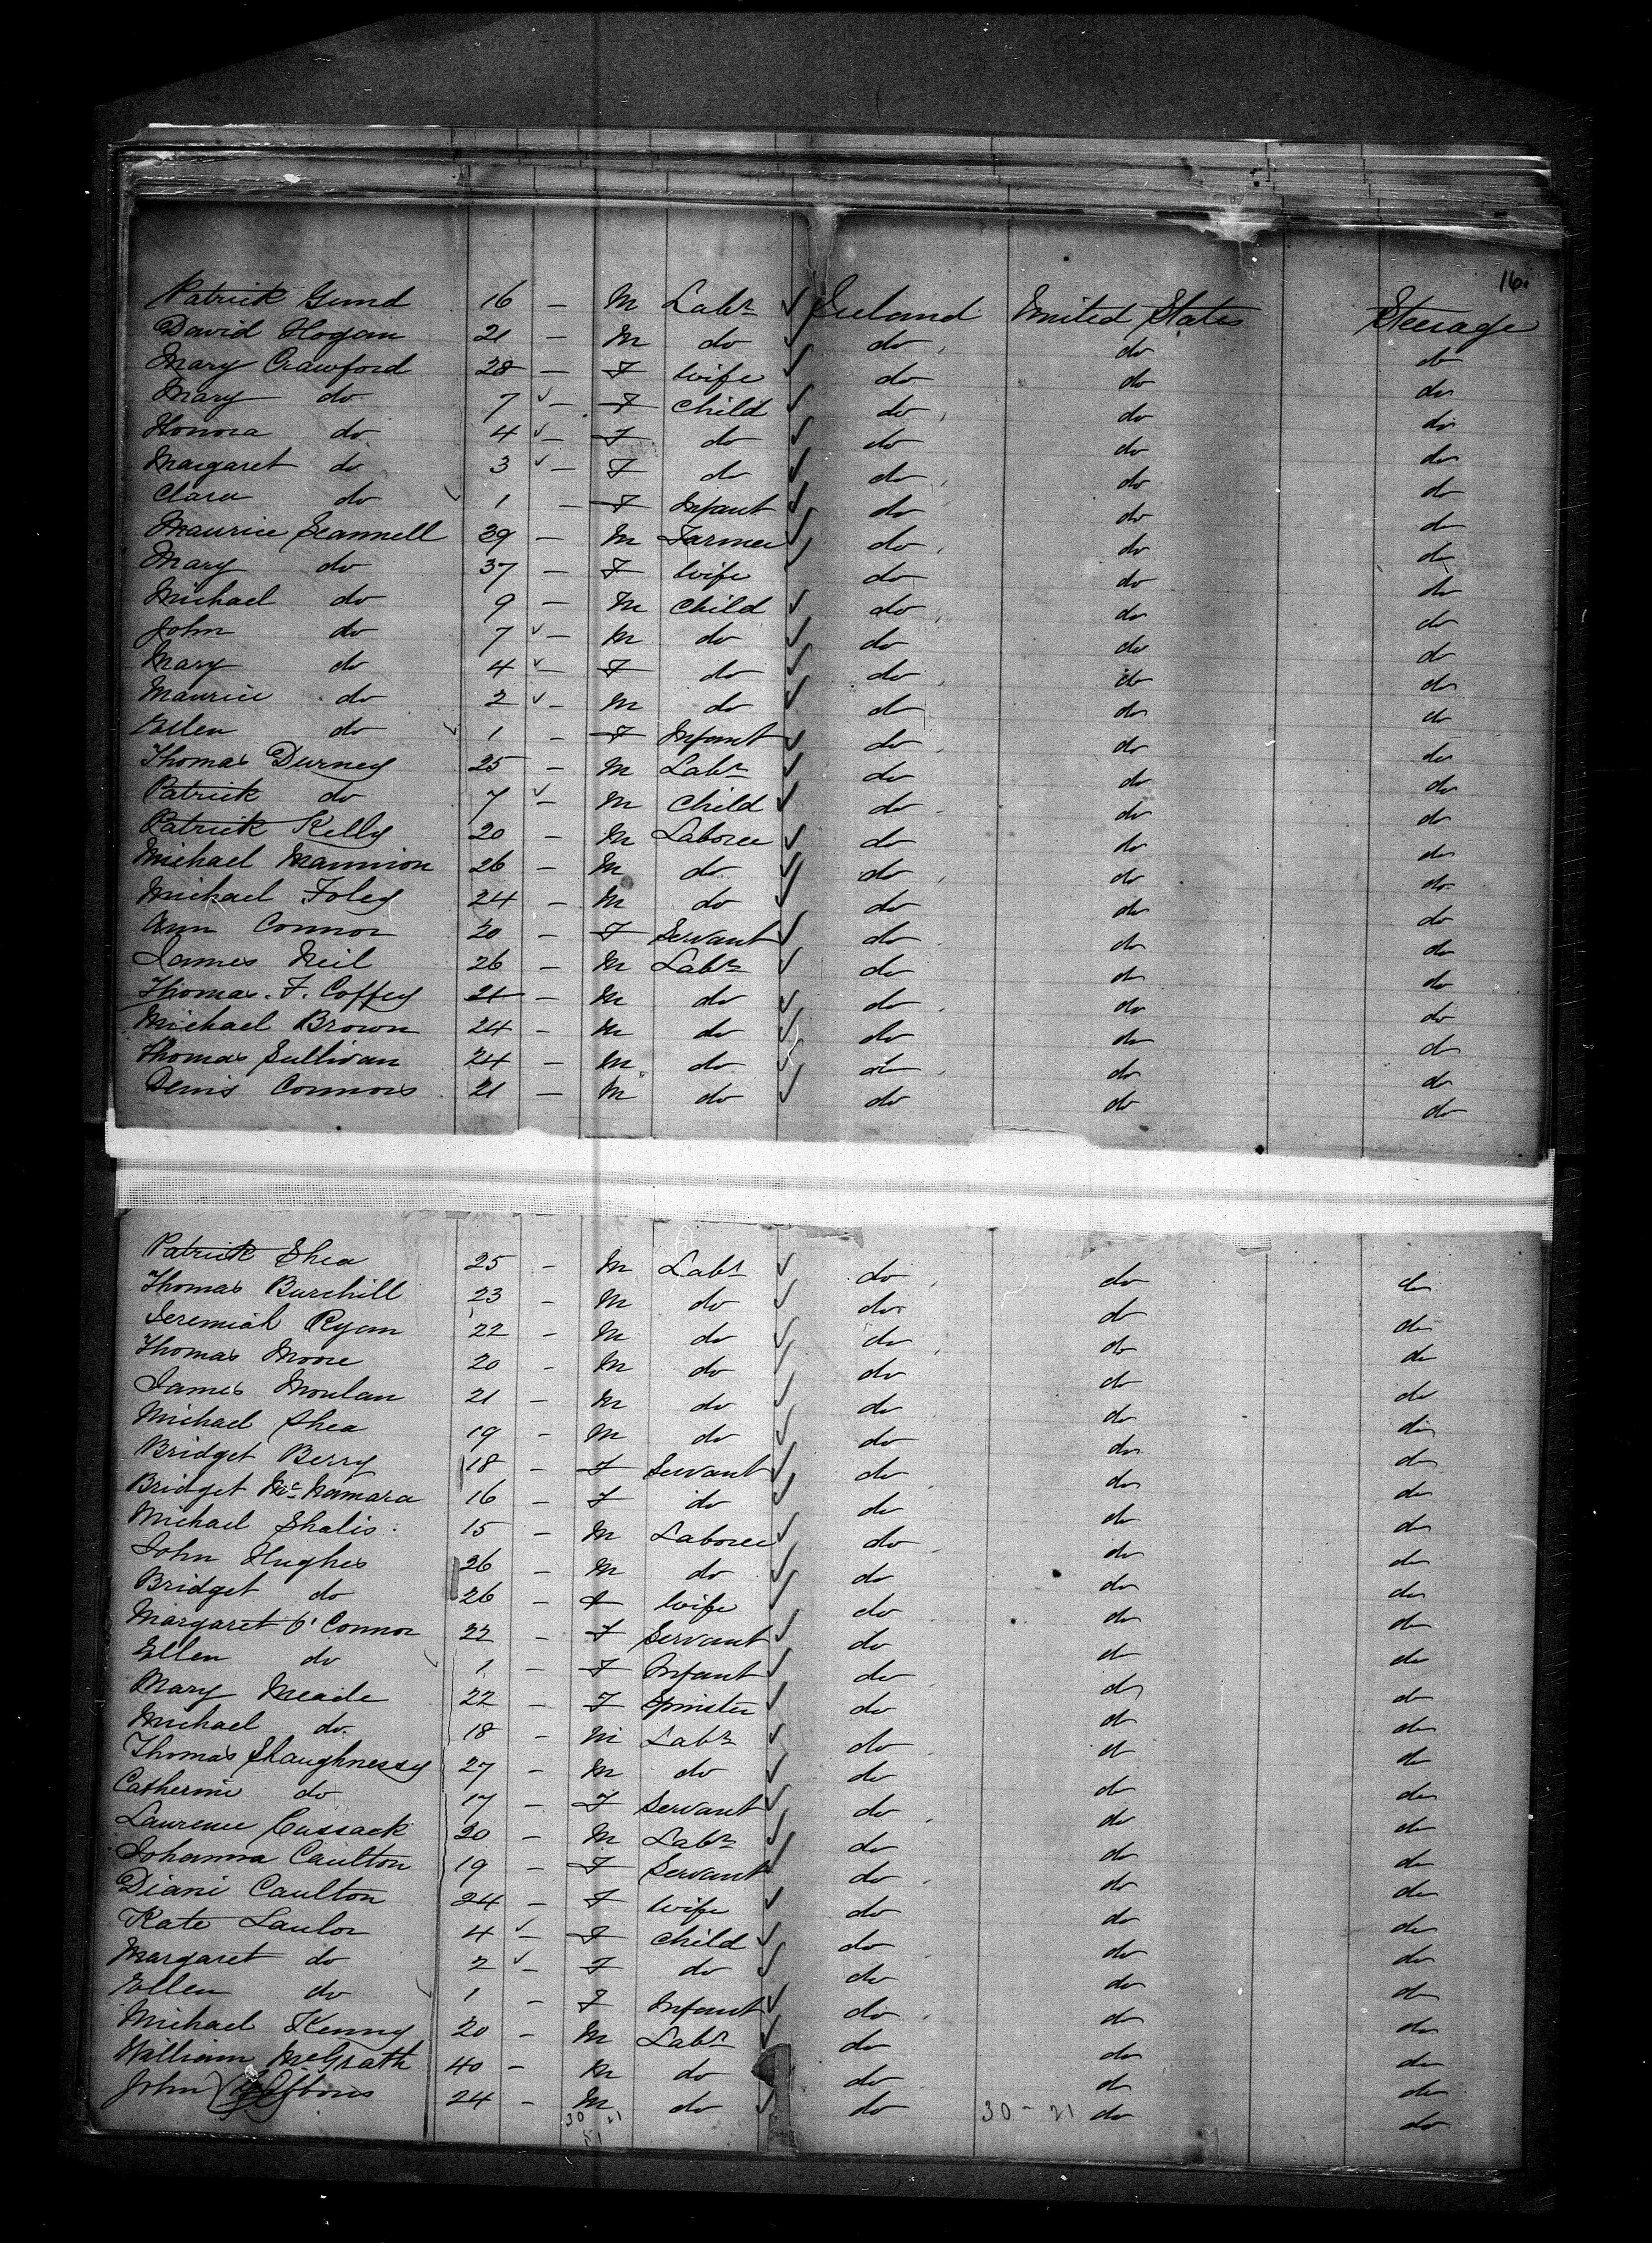 16.
Patrick Gund 16 — M Labr ✓ Ireland United States Steerage
David Hogan 21 — M do ✓ do do do
Mary Crawford 28 — F wife ✓ do do do
Mary do 7 ✓ — F child ✓ do do do
Honora do 4 ✓ — F do ✓ do do do
Margaret do 3 ✓ — F do ✓ do do do
Clara do ✓ 1 — F Infant ✓ do do do
Maurice Scannell 39 — M Farmer ✓ do do do
Mary do 37 — F wife ✓ do do do
Michael do 9 — M child ✓ do do do
John do 7 ✓ — M do ✓ do do do
Mary do 4 ✓ — F do ✓ do do do
Maurice do 2 ✓ — M do ✓ do do do
Ellen do ✓ 1 — F Infant ✓ do do do
Thomas Durney 25 — M Labr ✓ do do do
Patrick do 7 ✓ — M child ✓ do do do
Patrick Kelly 20 — M Laborer ✓ do do do
Michael Mannion 26 — M do ✓ do do do
Michael Foley 24 — M do ✓ do do do
Ann Connor 20 — F Servant ✓ do do do
James Neil 26 — M Labr ✓ do do do
Thomas. F. Coffey 21 — M do ✓ do do do
Michael Brown 24 — M do ✓ do do do
Thomas Sullivan 24 — M do ✓ do do do
Denis Connors 21 — M do ✓ do do do
Patrick Shea 25 — M Labr ✓ do do do
Thomas Burchill 23 — M do ✓ do do do
Jeremiah Ryan 22 — M do ✓ do do do
Thomas Moore 20 — M do ✓ do do do
James Moulan 21 — M do ✓ do do do
Michael Shea 19 — M do ✓ do do do
Bridget Berry 18 — F Servant ✓ do do do
Bridget McNamara 16 — F do ✓ do do do
Michael Shalis 15 — M Laborer ✓ do do do
John Hughes 26 — M do ✓ do do do
Bridget do 26 — F wife ✓ do do do
Margaret O'Connor 22 — F Servant ✓ do do do
Ellen do ✓ 1 — F Infant ✓ do do do
Mary Meade 22 — F Spinster ✓ do do do
Michael do 18 — M Labr ✓ do do do
Thomas Shaughnessy 27 — M do ✓ do do do
Catherine do 17 — F Servant ✓ do do do
Laurence Cussack 20 — M Labr ✓ do do do
Johanna Caulton 19 — F Servant ✓ do do do
Diani Caulton 24 — F wife ✓ do do do
Kate Laulor 4 ✓ — F child ✓ do do do
Margaret do 2 ✓ — F do ✓ do do do
Ellen do ✓ 1 — F Infant ✓ do do do
Michael Kenny 20 — M Labr ✓ do do do
William McGrath 40 — M do do do do
John 24 — M do ✓ do do do
30 21 30 - 21
51